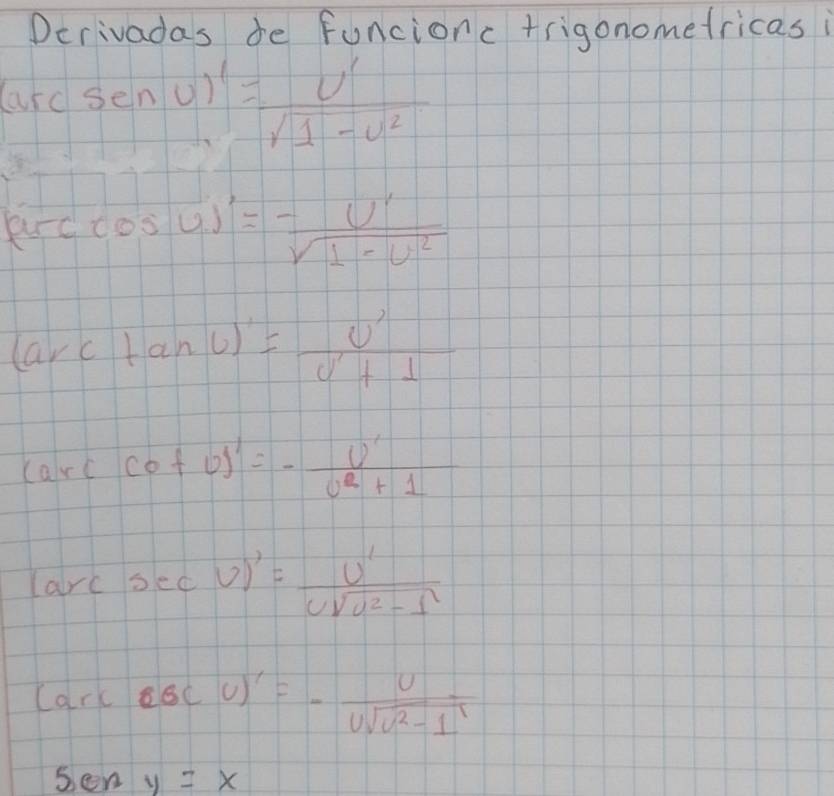 Derivadas de funcione trigonometricas i
(arc sen u)' = u' / √1 - u²
(arc cos u)' = - u' / √1 - u²
(arc tan u)' = u' / u' + 1
(arc cot u)' = - u' / u² + 1
(arc sec u)' = u' / u√u² - 1
(arc csc u)' = - u / u√u² - 1
Sen y = x